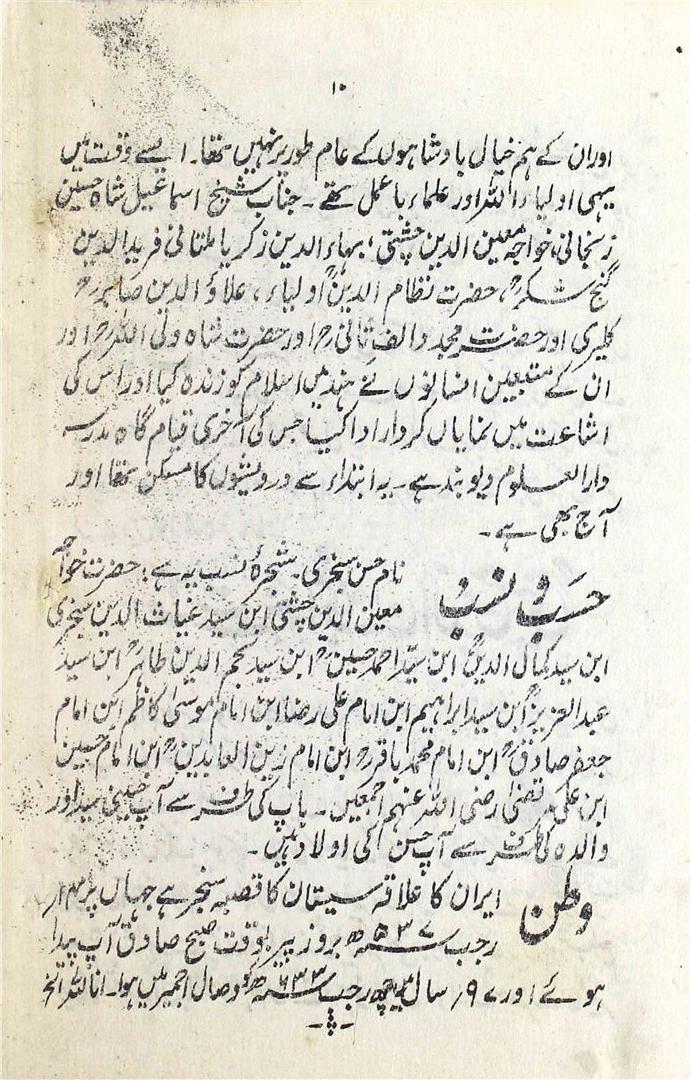 ۱۰
اوران کے ہم خیال بادشاہوں کے عام طور پر نہیں تھا۔ ایسے وقت میں
یہی اولیاء اللہ اور علماء باعمل تھے۔ جناب شیخ اسماعیل شاہ حسین
زنجانی، خواجہ معین الدین چشتی، بہاء الدین زکریا ملتانی فرید الدین
گنج شکرؒ، حضرت نظام الدینؒ اولیاء، علاؤ الدین صابرؒ
کلیری اور حضرت مجدد الف ثانیؒ اور حضرت شاہ ولی اللہؒ اور
ان کے متبعین انسانوں نے ہند میں اسلام کو زندہ کیا اور اس کی
اشاعت میں نمایاں کردار ادا کیا جس کی آخری قیام گاہ مدرسہ
دارالعلوم دیوبند ہے۔ یہ ابتداء سے درویشوں کا مسکن تھا اور
آج بھی ہے۔
حسب و نسب نام حسن سنجری۔ شجرۂ نسب یہ ہے: حضرت خواجہ
معین الدین چشتیؒ ابن سید غیاث الدین سنجری
ابن سید کمال الدینؒ ابن سید احمد حسینؒ ابن سید نجم الدین طاہرؒ ابن سید
عبدالعزیزؒ ابن سید ابراہیم ابن امام علی رضا ابن امام موسیٰ کاظم ابن امام
جعفر صادقؒ ابن امام محمد باقرؒ ابن امام زین العابدینؒ ابن امام حسین
ابن علی مرتضیٰ رضی اللہ عنہم اجمعین۔ باپ کی طرف سے آپ حسینی سید اور
والدہ کی طرف سے آپ حسن کی اولاد ہیں۔
وطن ایران کا علاقہ سیستان کا قصبہ سنجر ہے جہاں پر ۱۴؍
رجب ۵۳۷ھ بروز پیر بوقت صبح صادق آپ پیدا
ہوئے اور ۹۷؍ سال رجب ۶۳۳ھ کو وصال اجمیر میں ہوا۔ انا للہ الخ